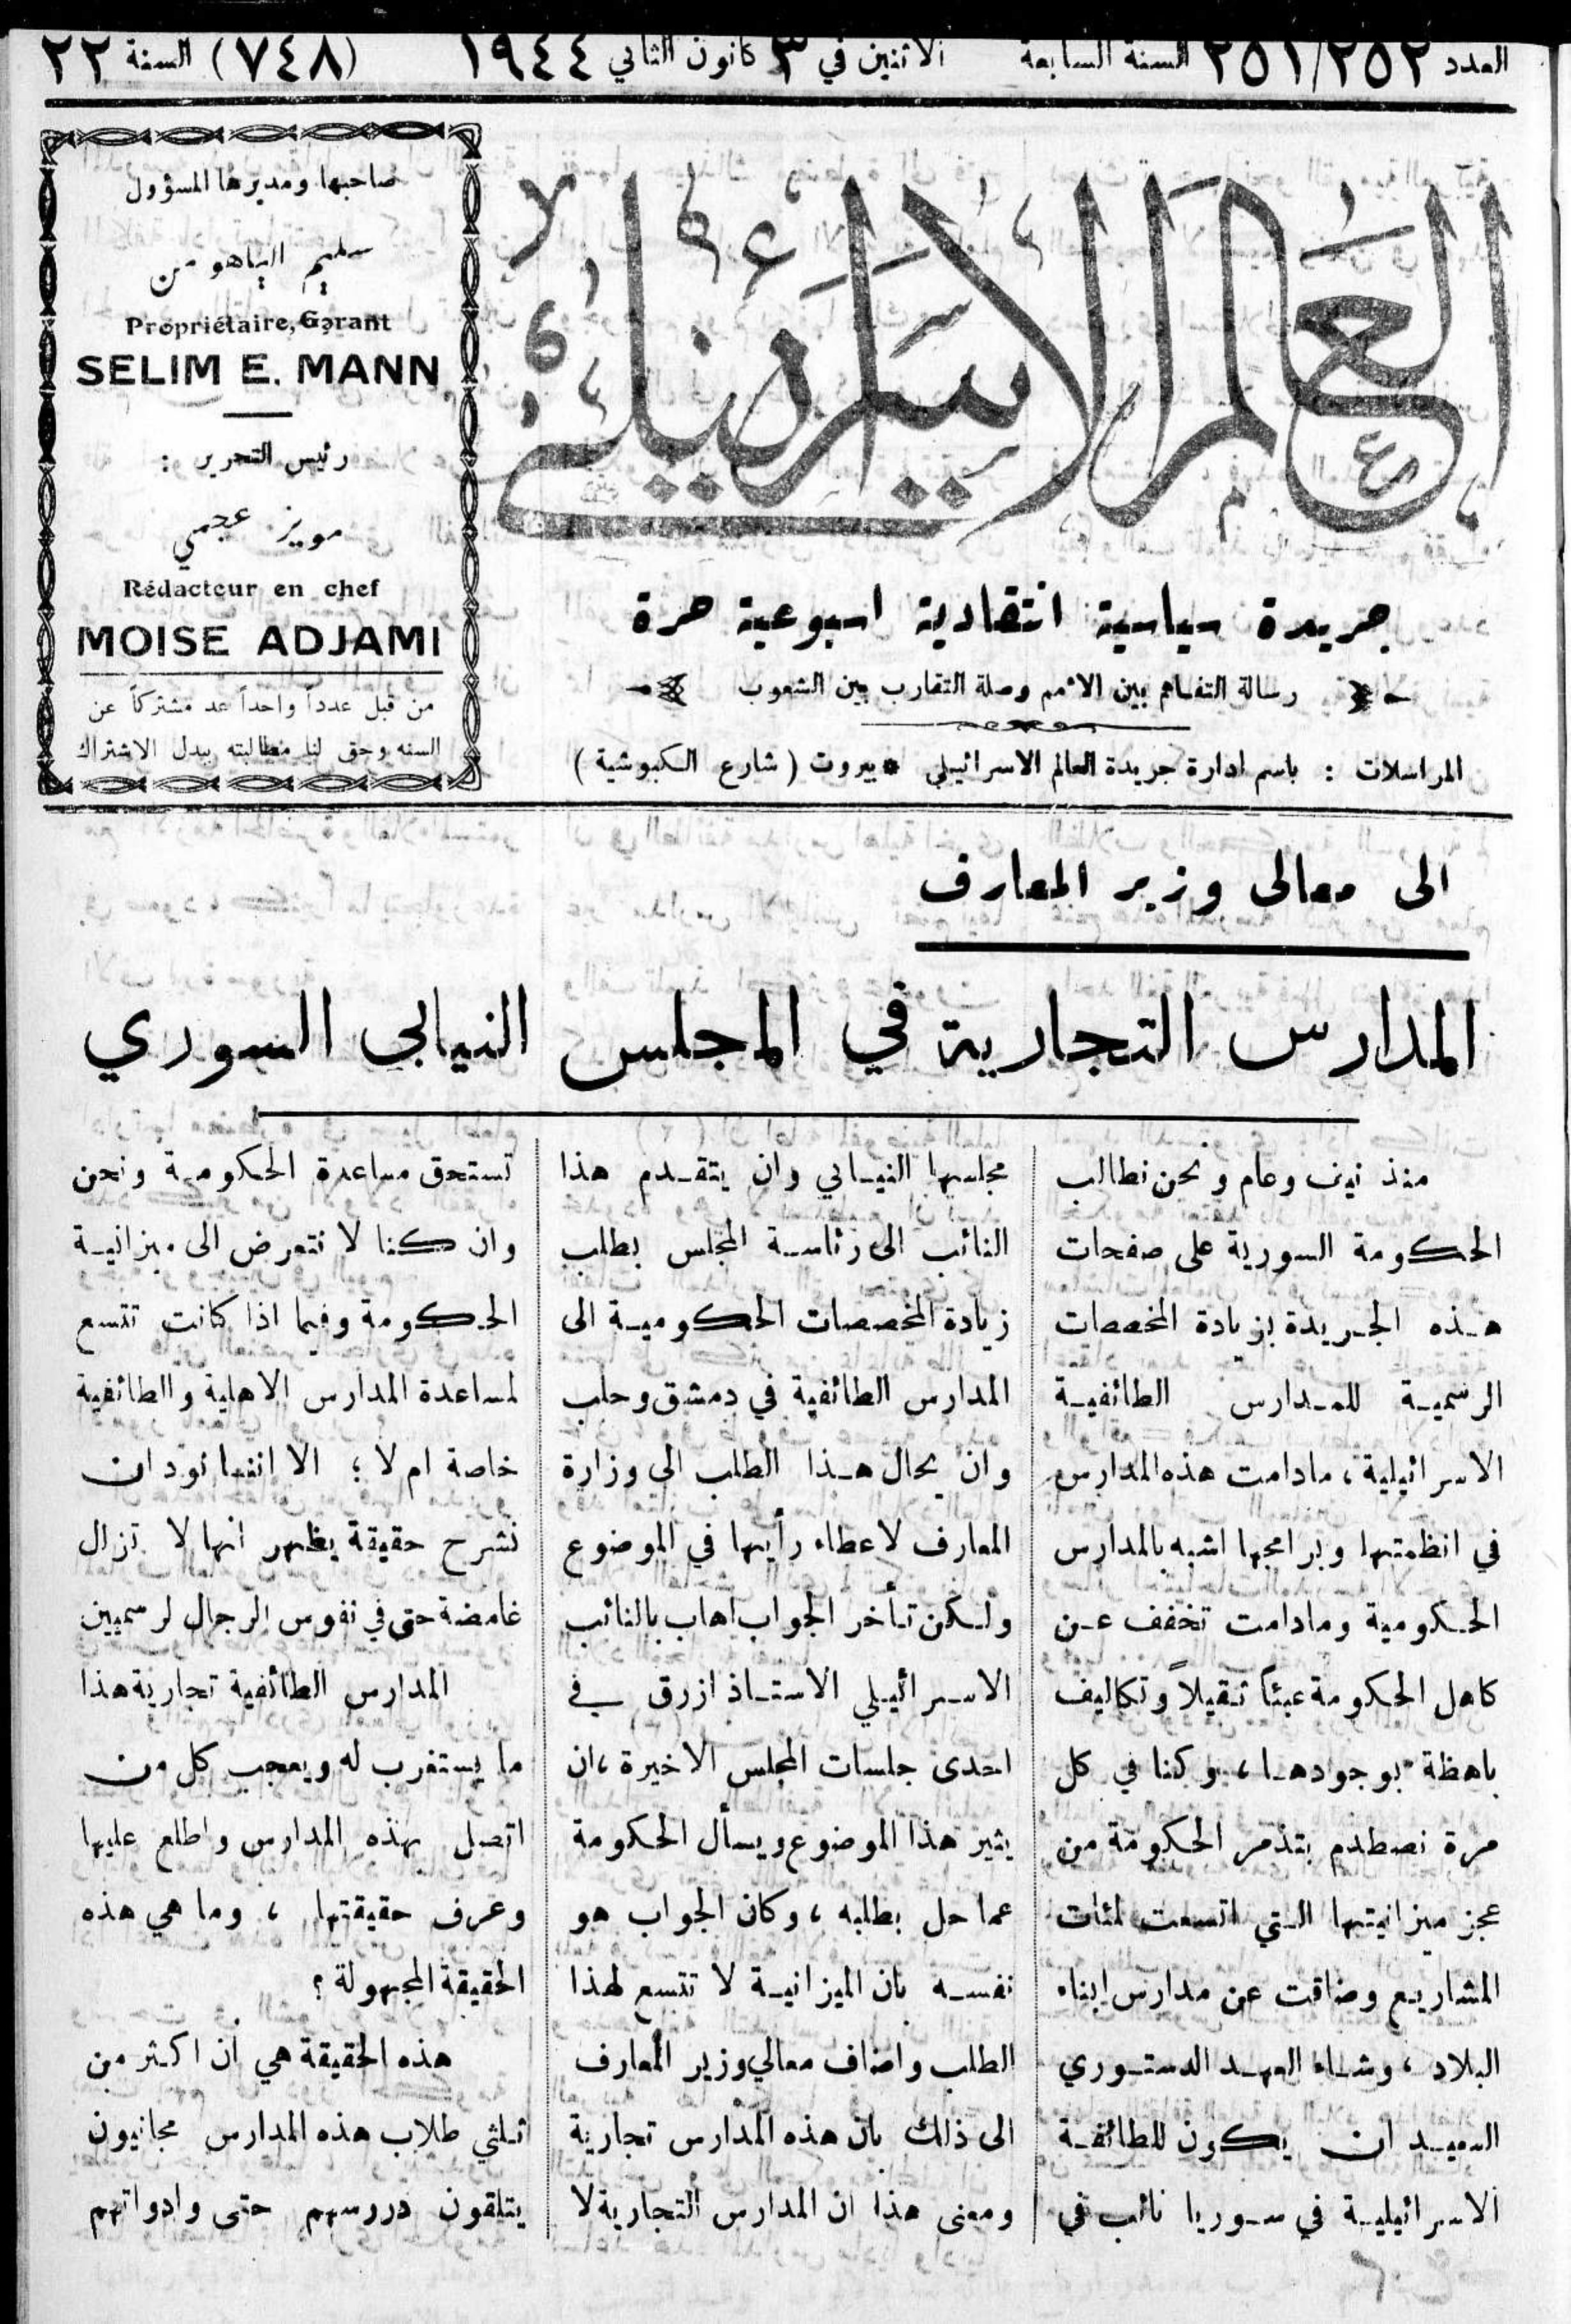 العدد ٢٥١/٢٥٢ السنة السابعة الاثنين في ٣ كانون الثاني ١٩٤٤ (٧٤٨) السنة ٢٢
العالم الاسرائيلي
جريدة سياسية انتقادية اسبوعية حرة
رسالة التفاهم بين الامم وصلة التقارب بين الشعوب
المراسلات : باسم ادارة جريدة العالم الاسرائيلي * بيروت ( شارع الكبوشية )
صاحبها ومديرها المسؤول
سليم الياهو من
Propriétaire, Gérant
SELIM E. MANN
رئيس التحرير :
مويز عجمي
Rédacteur en chef
MOISE ADJAMI
من قبل عدداً واحداً عد مشتركاً عن
السنه وحق لنا مطالبته ببدل الاشتراك
الى معالى وزير المعارف
المدارس التجارية في المجلس النيابي السوري
منذ نيف وعام ونحن نطالب
الحكومة السورية على صفحات
هذه الجريدة بزيادة المخصصات
الرسمية للمدارس الطائفية
الاسرائيلية ، مادامت هذه المدارس
في انظمتها وبرامجها اشبه بالمدارس
الحكومية ومادامت تخفف عن
كاهل الحكومة عبئاً ثقيلاً وتكاليف
باهظة بوجودها ، وكنا في كل
مرة نصطدم بتذمر الحكومة من
عجز ميزانيتها التي اتسعت لمئات
المشاريع وضاقت عن مدارس ابناء
البلاد ، وشاء العهد الدستوري
السعيد ان يكون للطائفة
الاسرائيلية في سوريا نائب في
مجلسها النيابي وان يتقدم هذا
النائب الى رئاسة المجلس بطلب
زيادة المخصصات الحكومية الى
المدارس الطائفية في دمشق وحلب
وان يحال هذا الطلب الى وزارة
المعارف لاعطاء رأيها في الموضوع
ولكن تأخر الجواب اهاب بالنائب
الاسرائيلي الاستاذ ازرق في
احدى جلسات المجلس الاخيرة ، ان
يثير هذا الموضوع ويسأل الحكومة
عما حل بطلبه ، وكان الجواب هو
نفسه بان الميزانية لا تتسع لهذا
الطلب واضاف معالي وزير المعارف
الى ذلك بان هذه المدارس تجارية
ومعنى هذا ان المدارس التجارية لا
تستحق مساعدة الحكومة ونحن
وان كنا لا نتعرض الى ميزانية
الحكومة وفيما اذا كانت تتسع
لمساعدة المدارس الاهلية والطائفية
خاصة ام لا ؛ الا اننا نود ان
نشرح حقيقة يظهر انها لا تزال
غامضة حتى في نفوس الرجال لرسميين
المدارس الطائفية تجارية هذا
ما يستغرب له ويعجب كل من
اتصل بهذه المدارس واطلع عليها
وعرف حقيقتها ، وما هي هذه
الحقيقة المجهولة ؟
هذه الحقيقة هي ان اكثر من
ثلثي طلاب هذه المدارس مجانيون
يتلقون دروسهم حتى وادواتهم